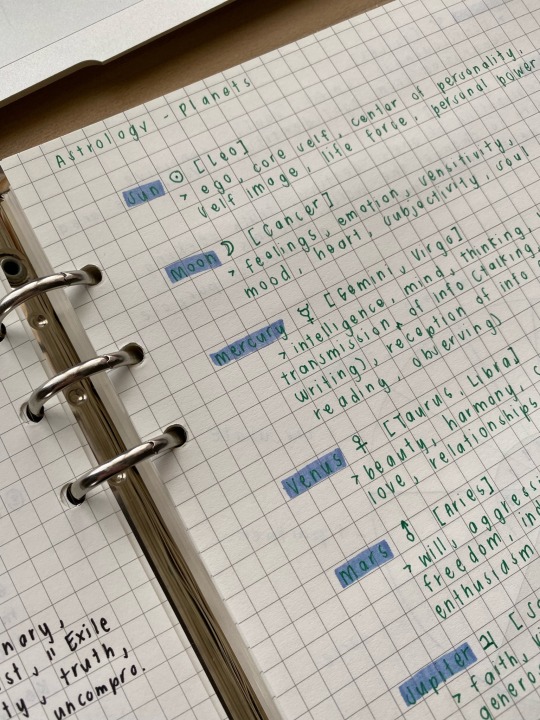 Astrology - Planets
Sun ☉ [Leo]
> ego, core self, center of personality,
self image, life force, personal power
Moon ☽ [Cancer]
> feelings, emotion, sensitivity,
mood, heart, subjectivity, soul
mercury ☿ [Gemini, Virgo]
> intelligence, mind, thinking,
transmission of info (talking,
writing), reception of info
reading, observing)
Venus ♀ [Taurus, Libra]
> beauty, harmony,
love, relationships
Mars ♂ [Aries]
> will,
freedom,
enthusiasm
Jupiter ♃
> faith,
truth,
"Exile
uncompro.